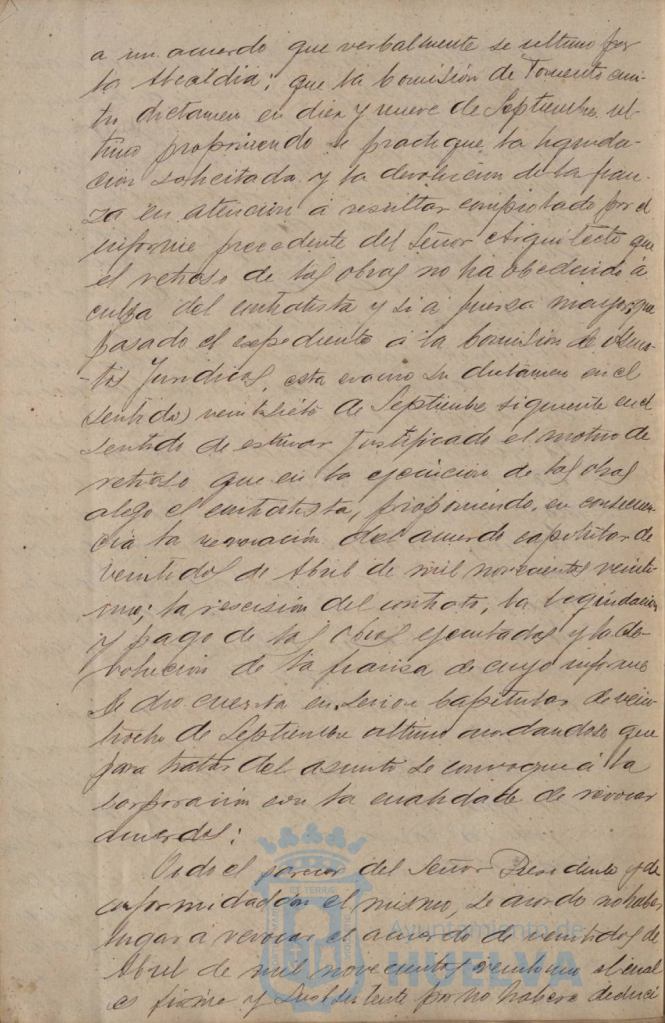 a un acuerdo que verbalmente se ultimo por
la Alcaldia; que la Comisión de Fomento emi-
tio dictamen en diez y nueve de Septiembre ul-
timo proponiendo se practique la liquida-
cion solicitada y la devolucion de la fian-
za en atencion á resultar comprobado por el
informe precedente del Señor Arquitecto que
el retraso de las obras no ha obedecido á
culpa del contratista y si á fuerza mayor; que
pasado el expediente á la Comision de Asun-
tos Juridicos, esta evacuo su dictamen en el
sentido) veintisiete de Septiembre siguiente en el
sentido de estimar justificado el motivo de
retraso que en la ejecucion de las obras
alego el contratista, proponiendo, en consecuen-
cia la revocación del acuerdo capitular de
veintidos de Abril de mil novecientos veinti-
uno; la rescisión del contrato, la liquidacion
y pago de las obras ejecutadas y la de-
volucion de la fianza de cuyo informe
se dio cuenta en sesion Capitular de vein-
tiocho de Septiembre ultimo acordandose que
para tratar del asunto se convoque á la
Corporación con la cualidad de revocar
acuerdos:
Oido el parecer del Señor Presidente y de
conformidad con el mismo, se acordo no haber
lugar á revocar el acuerdo de veintidos de
Abril de mil novecientos veintiuno el cual
es firme y subsistente por no haberse deduci
Ayuntamiento de
HUELVA